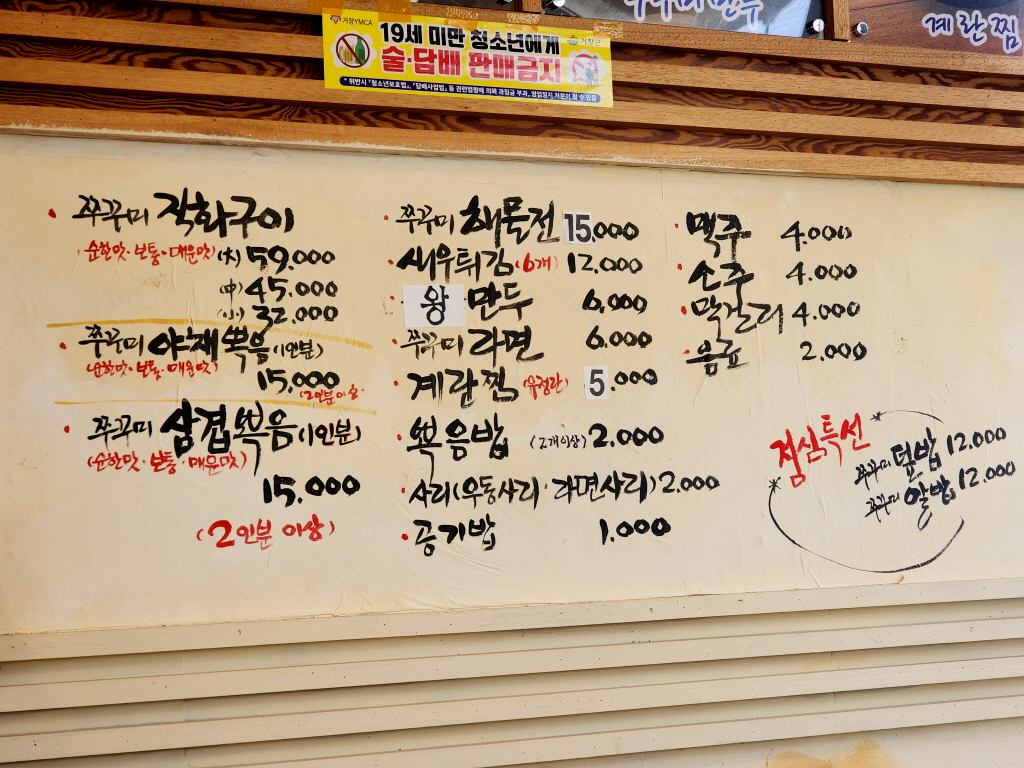 거창YMCA
19세 미만 청소년에게
거창군
술·담배 판매금지
* 위반시 「청소년보호법」, 「담배사업법」 등 관련법령에 의해 과징금 부과, 영업정지 처분이 될 수 있음
계란찜
· 쭈꾸미 직화구이
(순한맛·보통·매운맛) (大) 59.000
(中) 45.000
(小) 32.000
· 쭈꾸미 야채볶음 (1인분)
(순한맛·보통·매운맛)
15.000
(2인분 이상)
· 쭈꾸미 삼겹볶음 (1인분)
(순한맛·보통·매운맛)
15.000
(2인분 이상)
· 쭈꾸미 해물전 15.000
· 새우튀김 (6개) 12.000
왕 만두 6.000
쭈꾸미 라면 6.000
· 계란찜 (유정란) 5.000
· 볶음밥 (2개이상) 2.000
· 사리 (우동사리·라면사리) 2.000
· 공기밥 1.000
· 맥주 4.000
· 소주 4.000
· 막걸리 4.000
· 음료 2.000
점심특선
쭈꾸미 덮밥 12.000
쭈꾸미 알밥 12.000